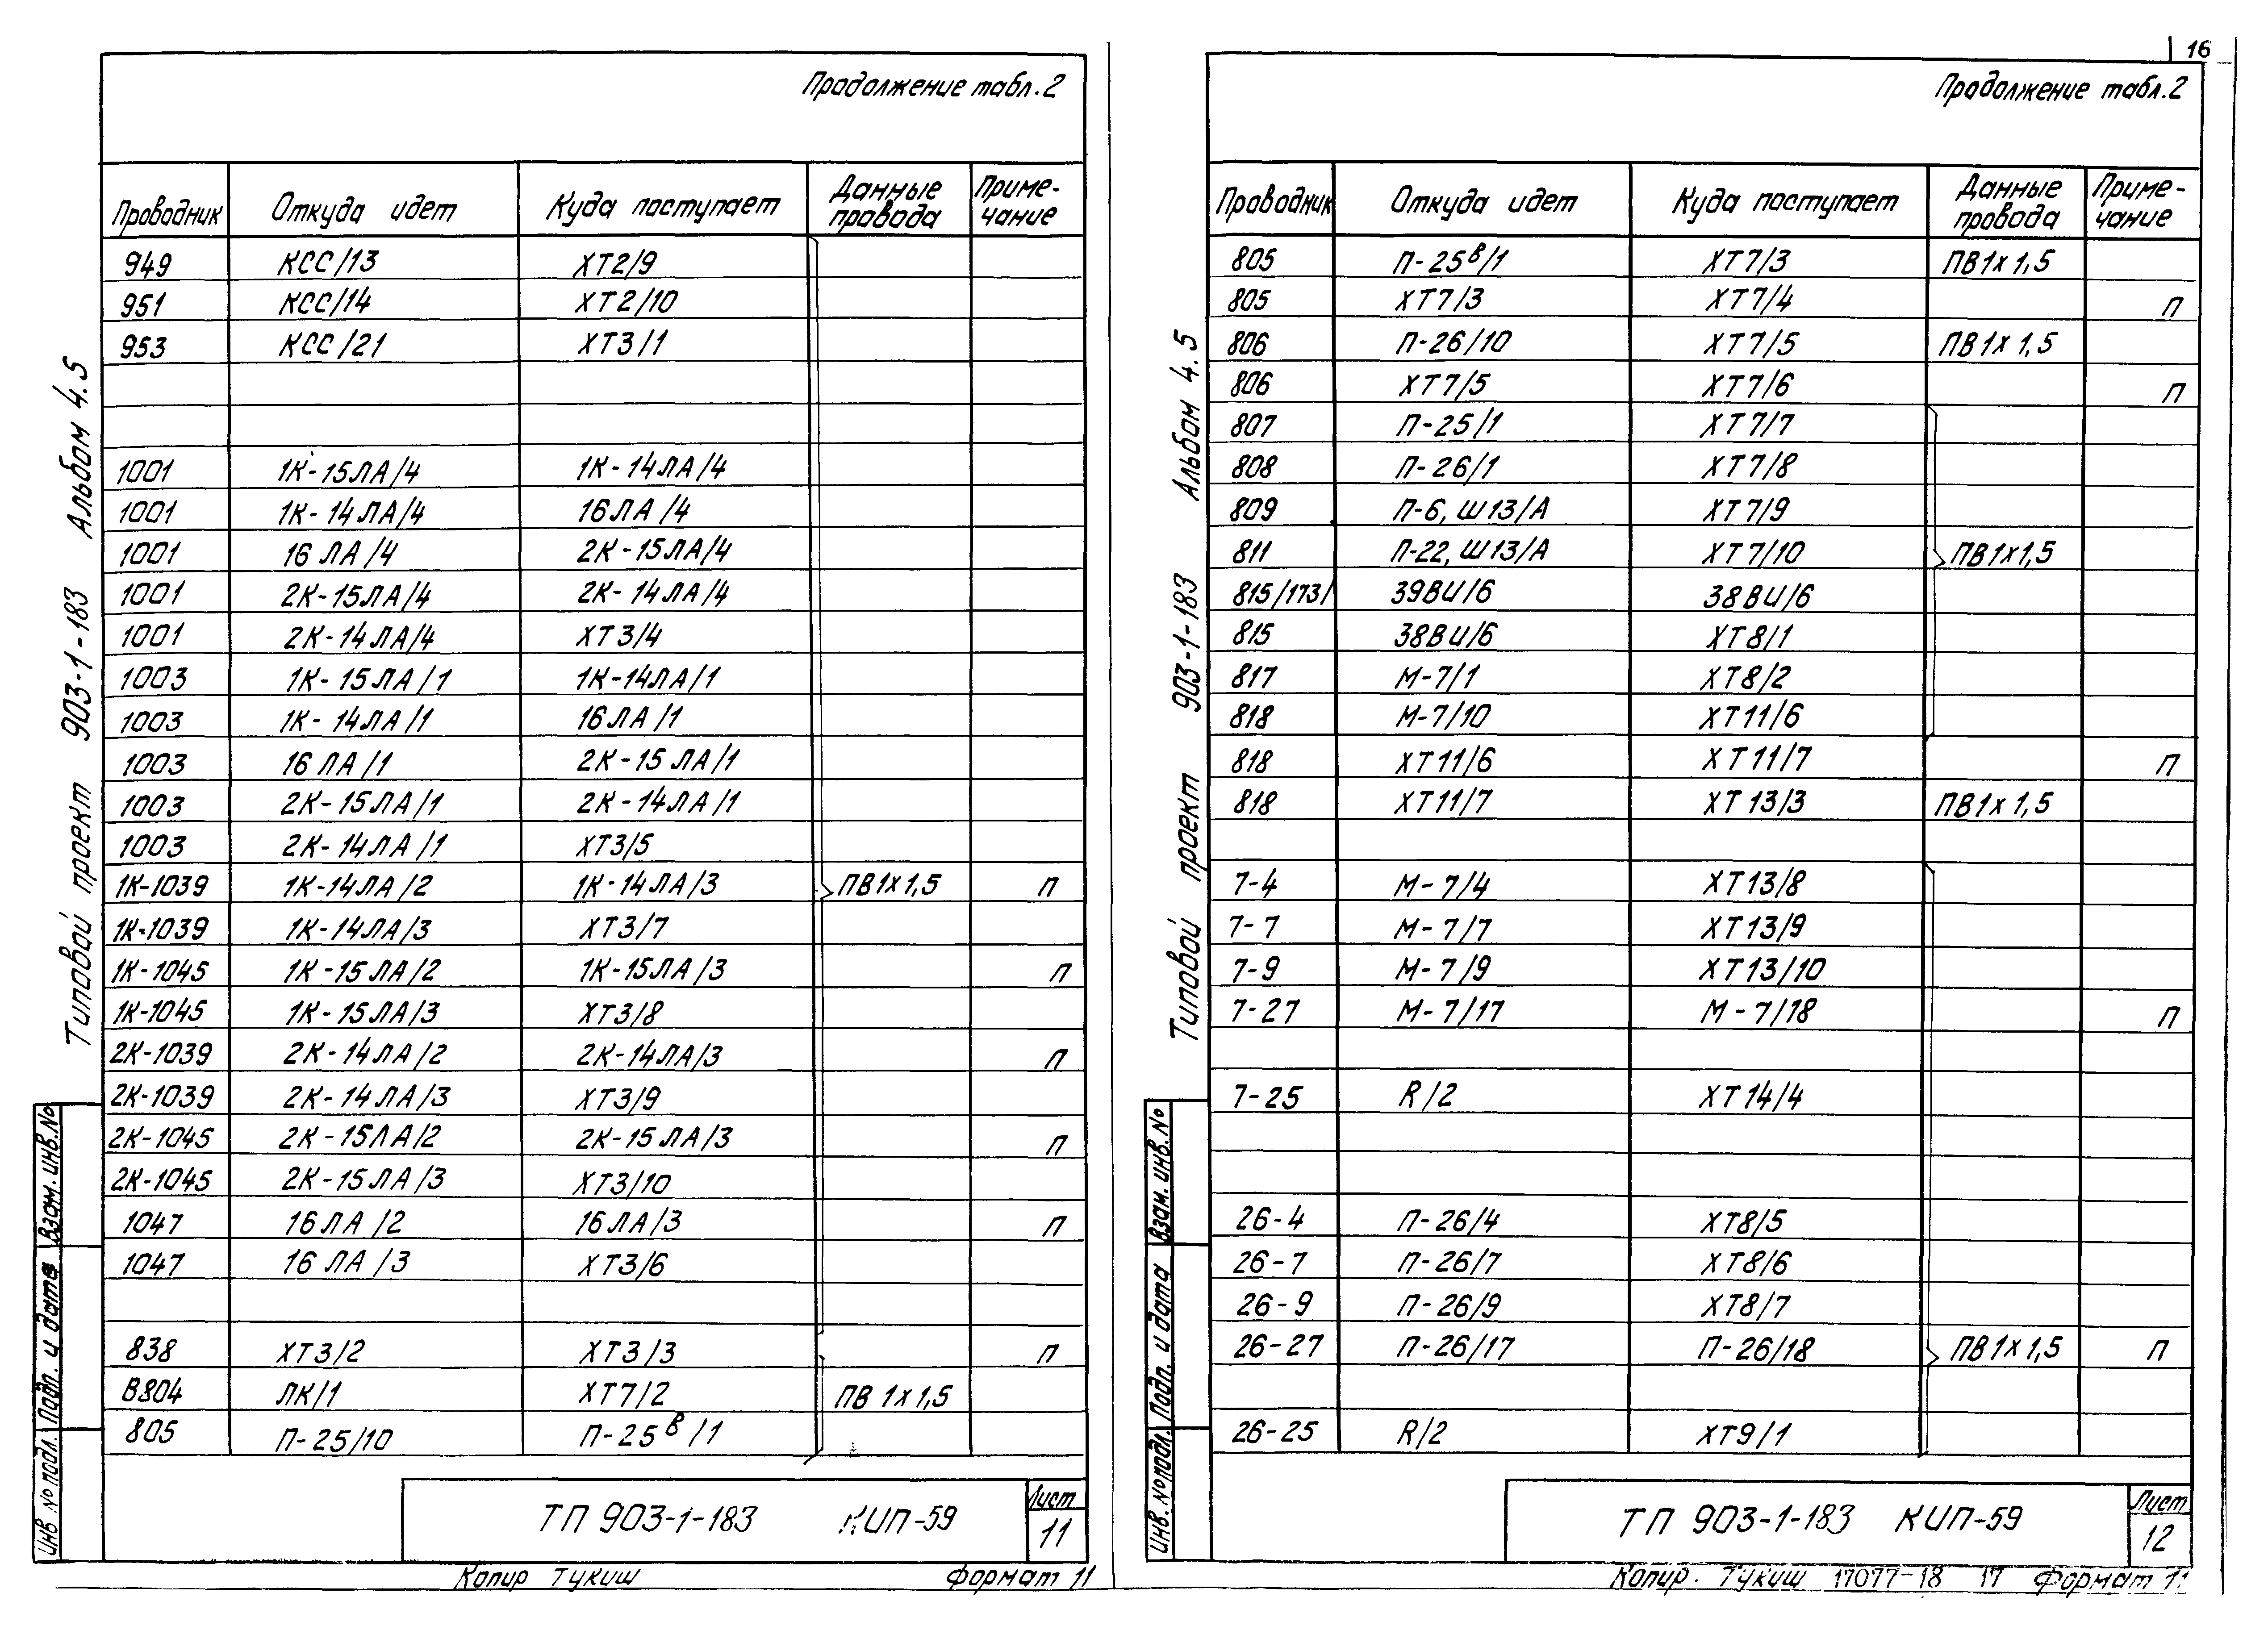 16
Продолжение табл. 2
Проводник Откуда идет Куда поступает Данные провода Приме-чание
949 КСС/13 ХТ2/9
951 КСС/14 ХТ2/10
953 КСС/21 ХТ3/1
1001 1К-15ЛА/4 1К-14ЛА/4
1001 1К-14ЛА/4 16ЛА/4
1001 16ЛА/4 2К-15ЛА/4
1001 2К-15ЛА/4 2К-14ЛА/4
1001 2К-14ЛА/4 ХТ3/4
1003 1К-15ЛА/1 1К-14ЛА/1
1003 1К-14ЛА/1 16ЛА/1
1003 16ЛА/1 2К-15ЛА/1
1003 2К-15ЛА/1 2К-14ЛА/1
1003 2К-14ЛА/1 ХТ3/5
1К-1039 1К-14ЛА/2 1К-14ЛА/3 ПВ1х1,5 п
1К-1039 1К-14ЛА/3 ХТ3/7
1К-1045 1К-15ЛА/2 1К-15ЛА/3 п
1К-1045 1К-15ЛА/3 ХТ3/8
2К-1039 2К-14ЛА/2 2К-14ЛА/3 п
2К-1039 2К-14ЛА/3 ХТ3/9
2К-1045 2К-15ЛА/2 2К-15ЛА/3 п
2К-1045 2К-15ЛА/3 ХТ3/10
1047 16ЛА/2 16ЛА/3 п
1047 16ЛА/3 ХТ3/6
838 ХТ3/2 ХТ3/3 п
В804 ЛК/1 ХТ7/2 ПВ 1х1,5
805 П-25/10 П-25В/1
ТП 903-1-183 КИП-59
Лист
11
Копир Тукиш Формат 11
Типовой проект 903-1-183 Альбом 4.5
Взам. инв. №
Подп. и дата
Инв. № подл.
Продолжение табл. 2
Проводник Откуда идет Куда поступает Данные провода Приме-чание
805 П-25В/1 ХТ7/3 ПВ1х1,5
805 ХТ7/3 ХТ7/4 п
806 П-26/10 ХТ7/5 ПВ1х1,5
806 ХТ7/5 ХТ7/6 п
807 П-25/1 ХТ7/7
808 П-26/1 ХТ7/8
809 П-6, Ш13/А ХТ7/9
811 П-22, Ш13/А ХТ7/10 ПВ1х1,5
815/173/ 39ВИ/6 38ВИ/6
815 38ВИ/6 ХТ8/1
817 М-7/1 ХТ8/2
818 М-7/10 ХТ11/6
818 ХТ11/6 ХТ11/7 п
818 ХТ11/7 ХТ13/3 ПВ1х1,5
7-4 М-7/4 ХТ13/8
7-7 М-7/7 ХТ13/9
7-9 М-7/9 ХТ13/10
7-27 М-7/17 М-7/18 п
7-25 R/2 ХТ14/4
26-4 П-26/4 ХТ8/5
26-7 П-26/7 ХТ8/6
26-9 П-26/9 ХТ8/7
26-27 П-26/17 П-26/18 ПВ1х1,5 п
26-25 R/2 ХТ9/1
ТП 903-1-183 КИП-59
Лист
12
Копир. Тукиш 17077-18 17 Формат 11
Типовой проект 903-1-183 Альбом 4.5
Взам. инв. №
Подп. и дата
Инв. № подл.